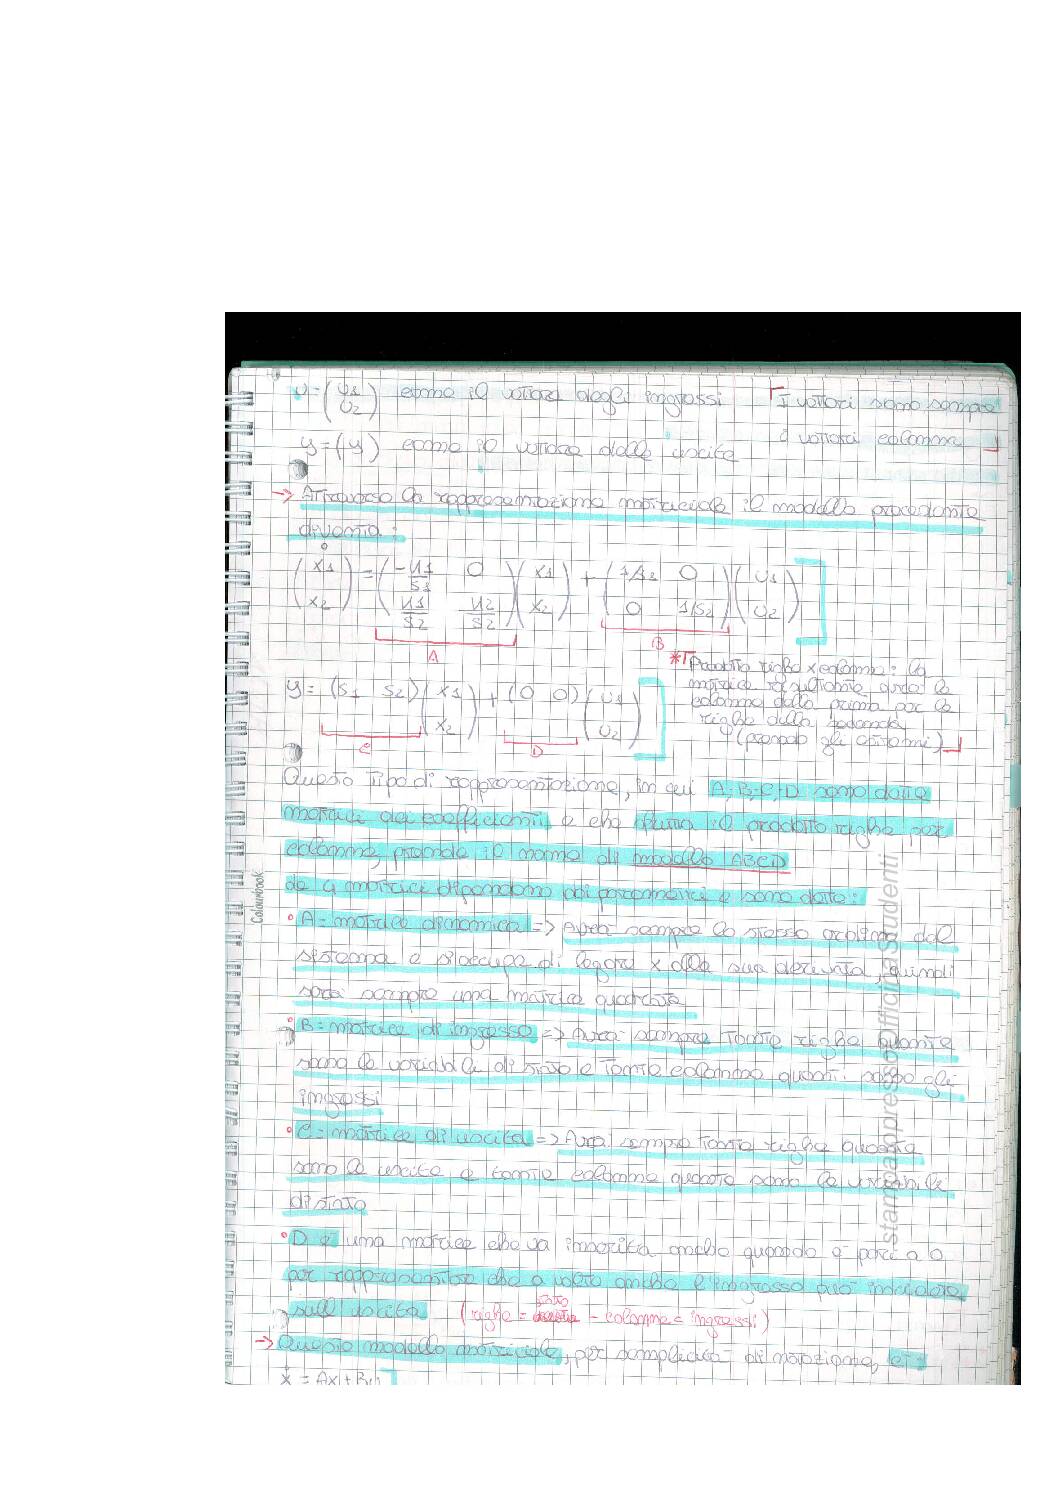 u = (u1 u2) come il vettore degli ingressi
I vettori sono sempre
i vettori colonna
y = (y) come il vettore delle uscite
→ Attraverso la rappresentazione matriciale il modello precedente
diventa:
(x1 x2) = (-k1/S1 0 k1/S2 k2/S2)(x1 x2) + (1/S1 0 0 1/S2)(u1 u2)
A
B
y = (S1 S2)(x1 x2) + (0 0)(u1 u2)
C
D
* Prodotto righe x colonne: la
matrice risultante avrà le
colonne della prima per le
righe della seconda
(prendo gli estremi)
Questo tipo di rappresentazione, in cui A, B, C, D sono dette
matrici dei coefficienti e che sfrutta il prodotto righe per
colonne, prende il nome di modello ABCD
Le 4 matrici dipendono dai parametri e sono dette:
• A = matrice dinamica => Avrà sempre lo stesso ordine del
sistema e si occupa di legare x alla sua derivata, quindi
sarà sempre una matrice quadrata
• B = matrice di ingresso => Avrà sempre tante righe quante
sono le variabili di stato e tante colonne quanti sono gli
ingressi
• C = matrice di uscita => Avrà sempre tante righe quante
sono le uscite e tante colonne quante sono le variabili
di stato
• D è una matrice che va inserita anche quando è pari a 0
per rappresentare che a volte anche l'ingresso può incidere
sull'uscita (righe = stato - colonne = ingressi)
→ Questo modello matriciale, per semplicità di notazione, è:
ẋ = Ax + Bu
Colourbook
stampopressoofficinaStudenti